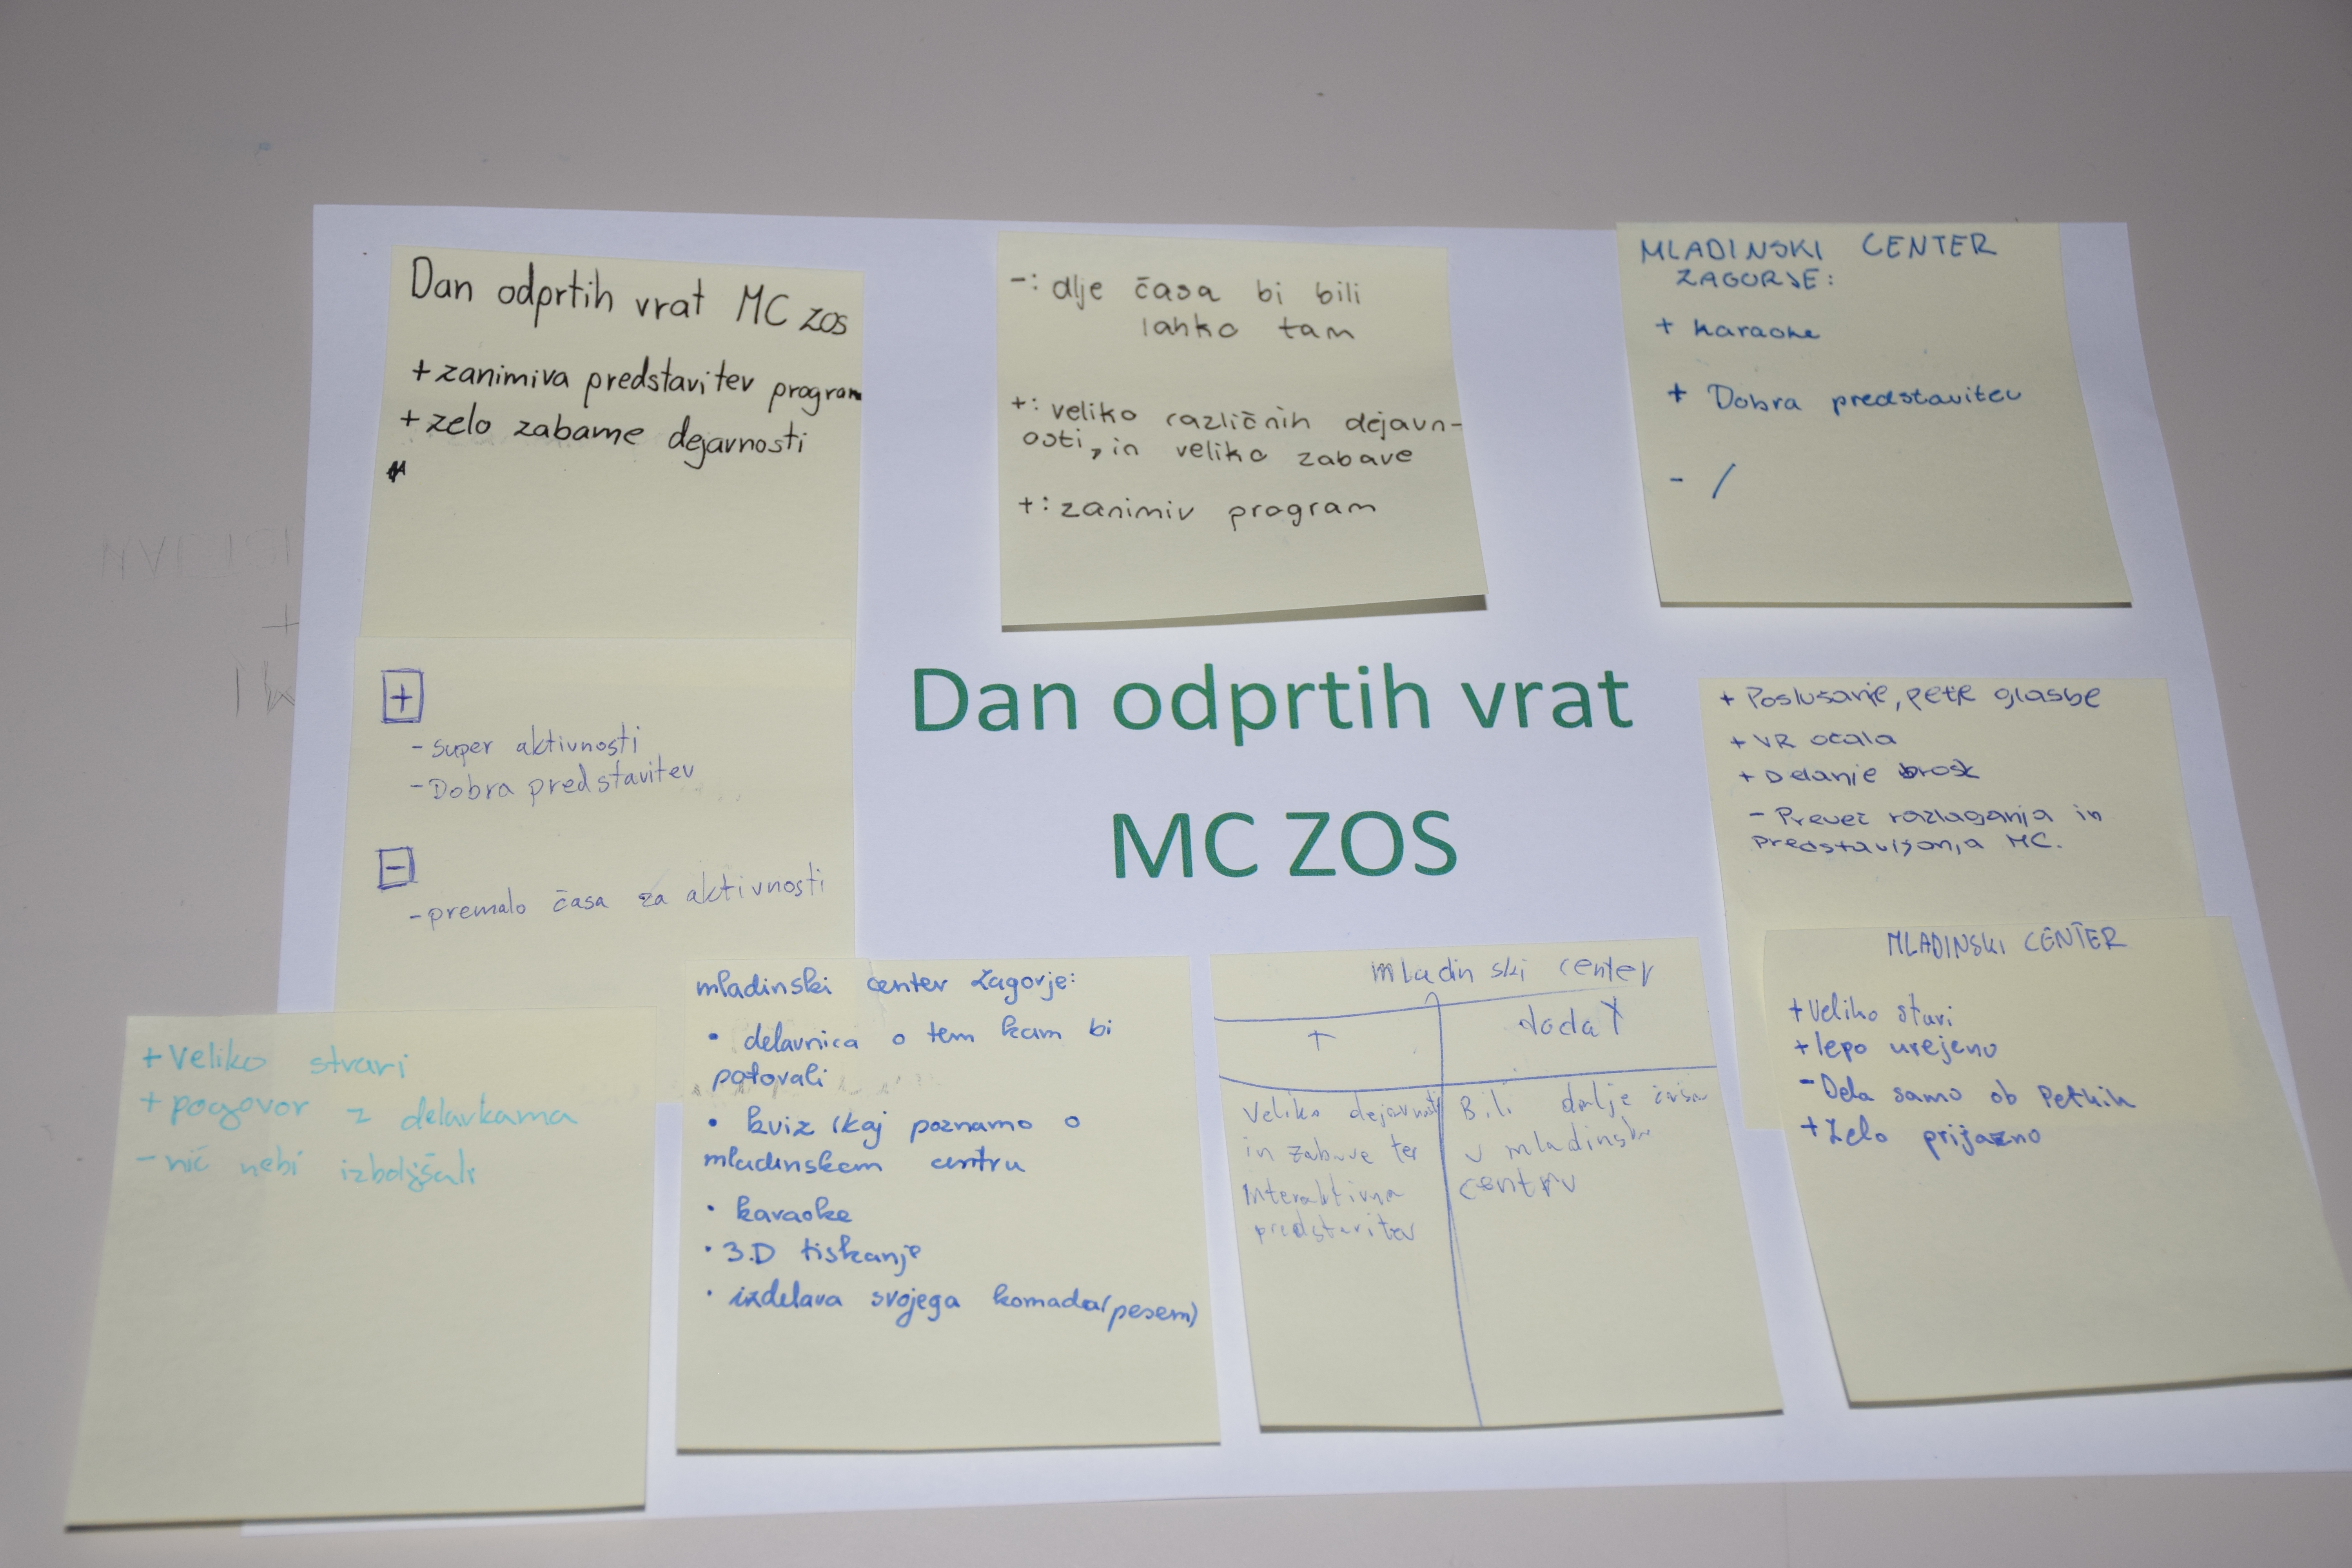 Dan odprtih vrat MC ZOS
+ zanimiva predstavitev program
+ zelo zabavne dejavnosti
-: dlje časa bi bili
lahko tam
+: veliko različnih dejavn-
osti, in veliko zabave
+: zanimiv program
MLADINSKI CENTER
ZAGORJE:
+ karaoke
+ Dobra predstavitev
- /
+
- super aktivnosti
- Dobra predstavitev
-
- premalo časa za aktivnosti
Dan odprtih vrat
MC ZOS
+ Poslušanje, petje glasbe
+ VR očala
+ Delanje brošk
- Preveč razlaganja in
predstavljanja MC.
+ Veliko stvari
+ pogovor z delavkama
- nič nebi izboljšali
mladinski center Zagorje:
• delavnica o tem kam bi
potovali
• kviz (kaj poznamo o
mladinskem centru
• karaoke
• 3.D tiskanje
• izdelava svojega komada(pesem)
mladinski center
+
Veliko dejavnosti
in zabave ter
Interaktivna
predstavitev
Bili dalje časa
v mladinske
centru
MLADINSKI CENTER
+ Veliko stvari
+ lepo urejeno
- Dela samo ob Petkih
+ Zelo prijazno